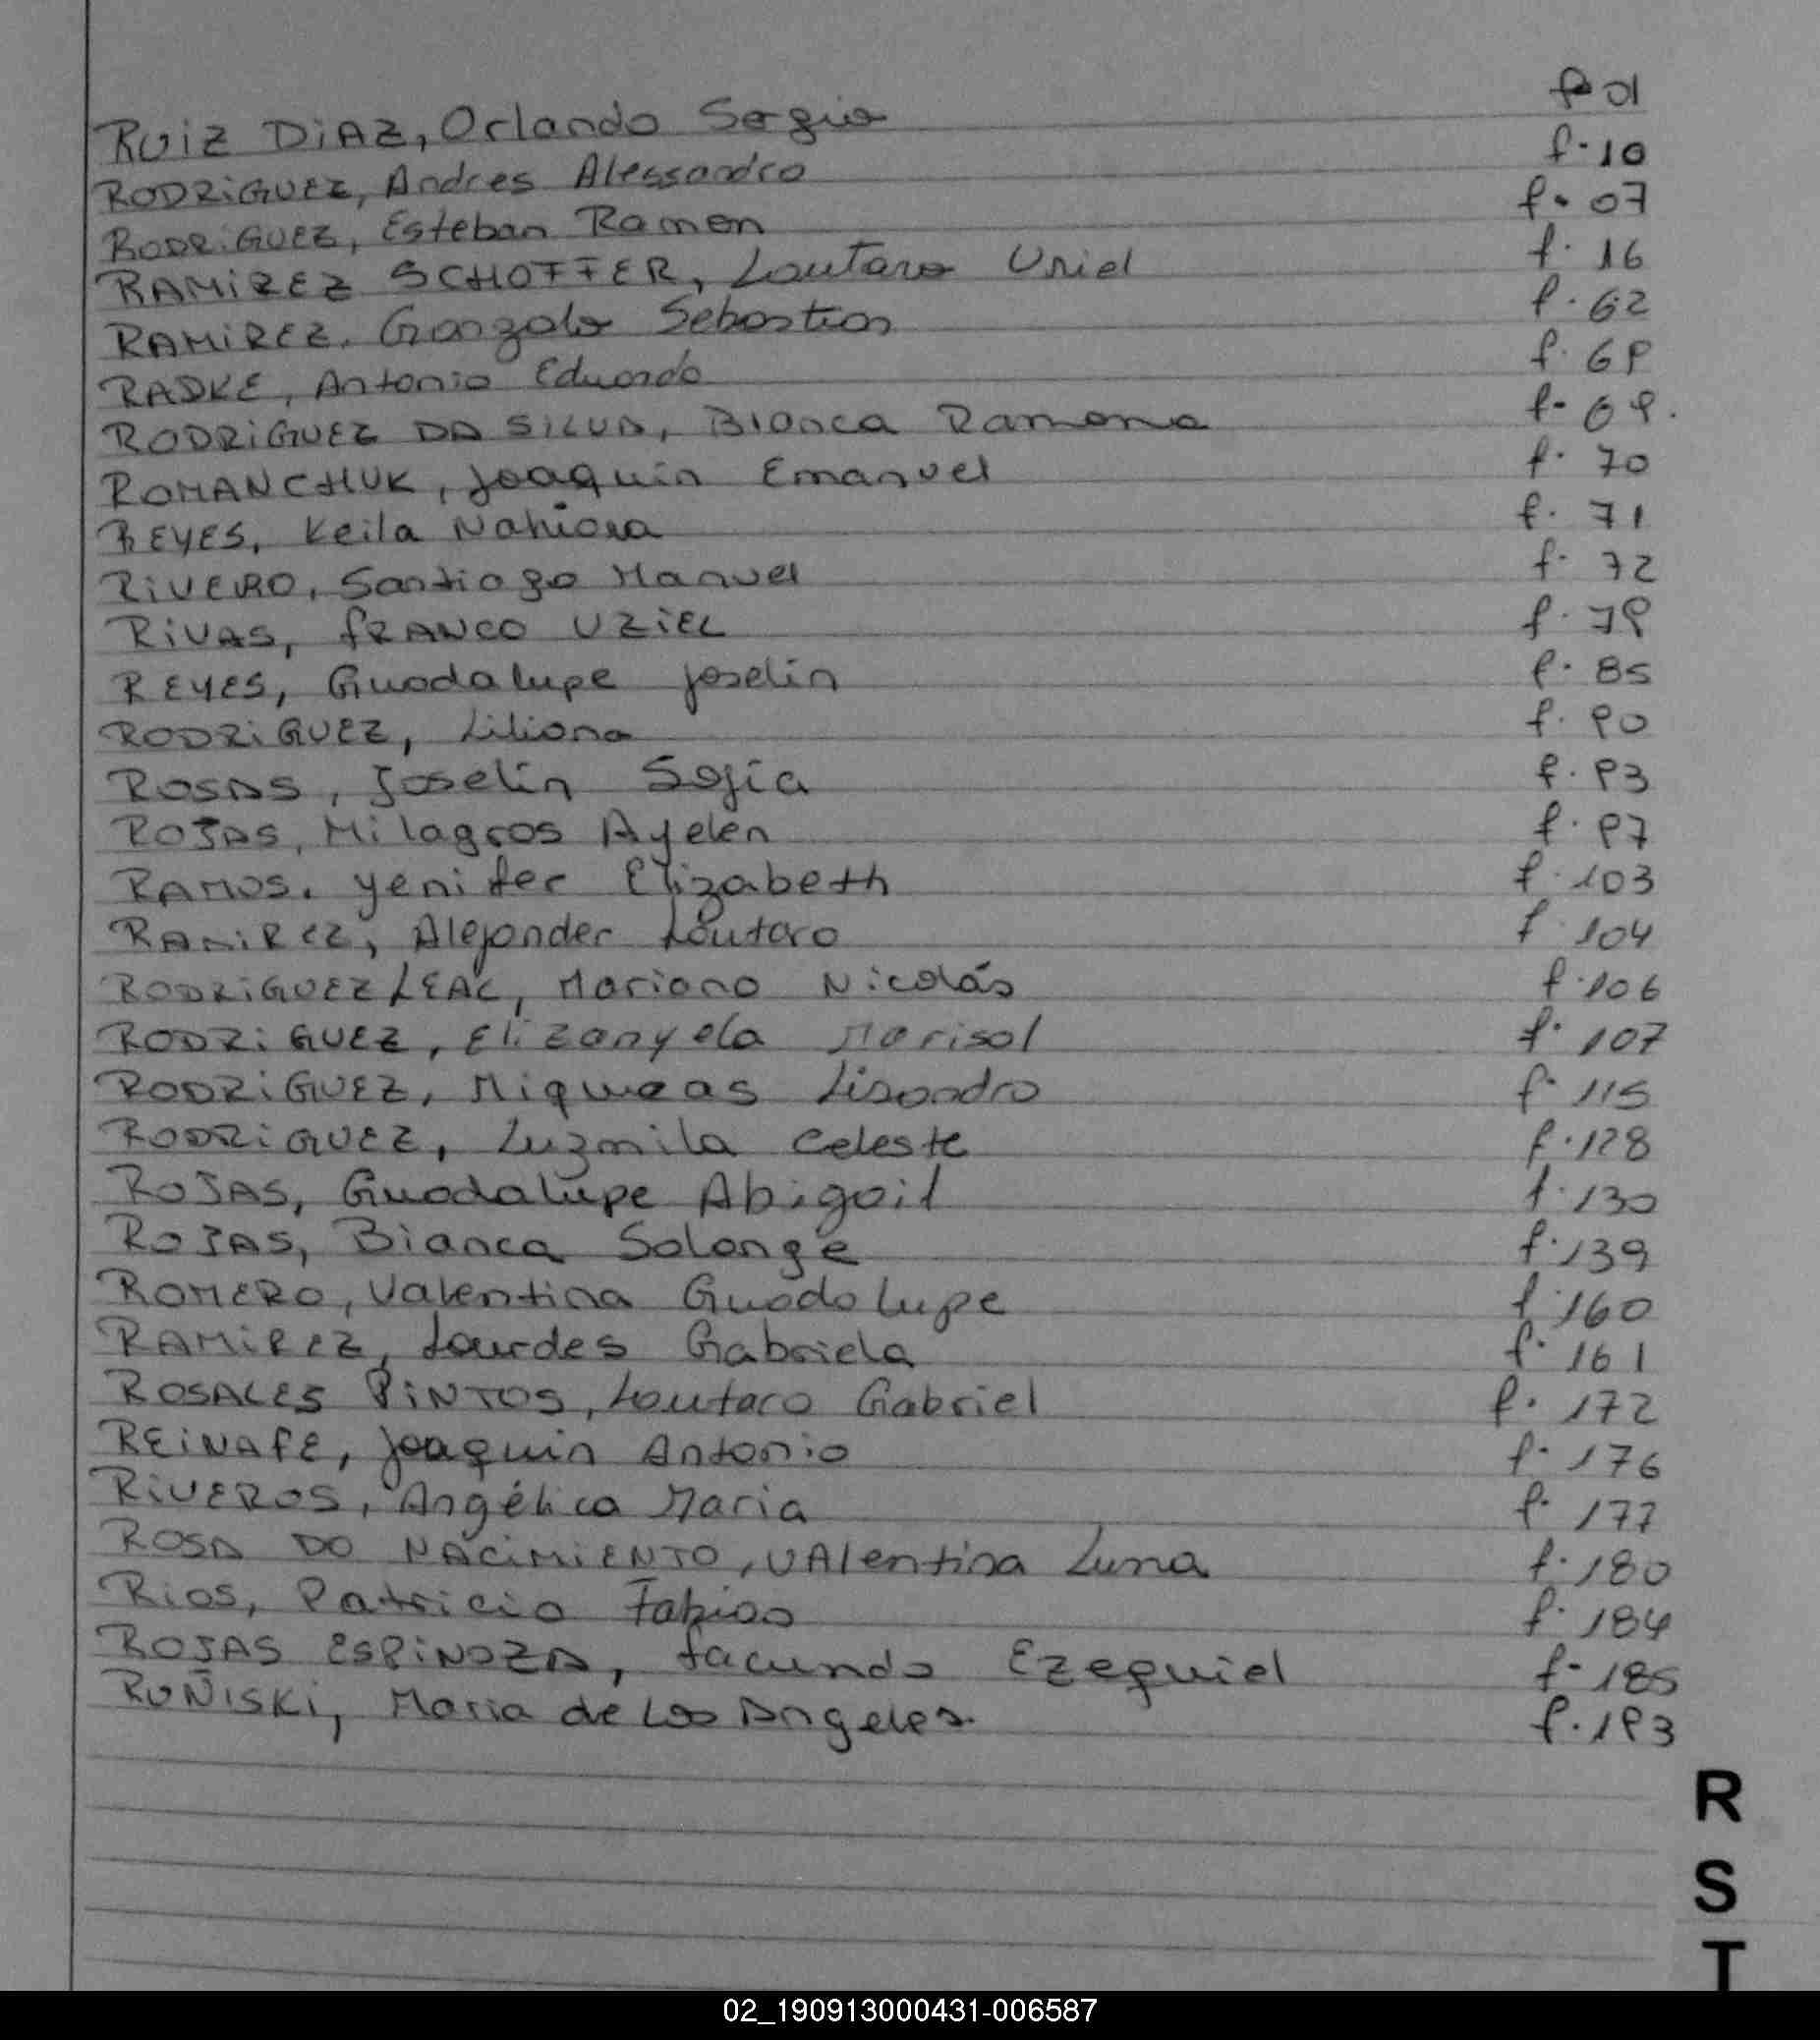 RUIZ DIAZ, Orlando Sergio f. 01
RODRIGUEZ, Andres Alessandro f. 10
RODRIGUEZ, Esteban Ramon f. 07
RAMIREZ SCHOFFER, Lautaro Uriel f. 16
RAMIREZ, Gonzalo Sebastian f. 62
RADKE, Antonio Eduardo f. 69
RODRIGUEZ DA SILVA, Blanca Ramona f. 69.
ROMANCHUK, Joaquin Emanuel f. 70
REYES, Keila Nahiara f. 71
RIVERO, Santiago Manuel f. 72
RIVAS, FRANCO UZIEL f. 79
REYES, Guadalupe Joselin f. 85
RODRIGUEZ, Liliana f. 90
ROSAS, Joselin Sofia f. 93
ROJAS, Milagros Ayelen f. 97
RAMOS, Yenifer Elizabeth f. 103
RAMIREZ, Alejander Lautaro f. 104
RODRIGUEZ LEAL, Mariano Nicolás f. 106
RODRIGUEZ, Elizanyela Marisol f. 107
RODRIGUEZ, Miqueas Lisandro f. 115
RODRIGUEZ, Luzmila Celeste f. 128
ROJAS, Guadalupe Abigail f. 130
ROJAS, Bianca Solange f. 139
ROMERO, Valentina Guadalupe f. 160
RAMIREZ, Lourdes Gabriela f. 161
ROSALES PINTOS, Lautaro Gabriel f. 172
REINAFE, Joaquin Antonio f. 176
RIVEROS, Angélica Maria f. 177
ROSA DO NACIMIENTO, VAlentina Luna f. 180
RIOS, Patricio Fabian f. 184
ROJAS ESPINOZA, Facundo Ezequiel f. 185
RUÑISKI, Maria de Los Angeles. f. 193
R
S
T
02_190913000431-006587